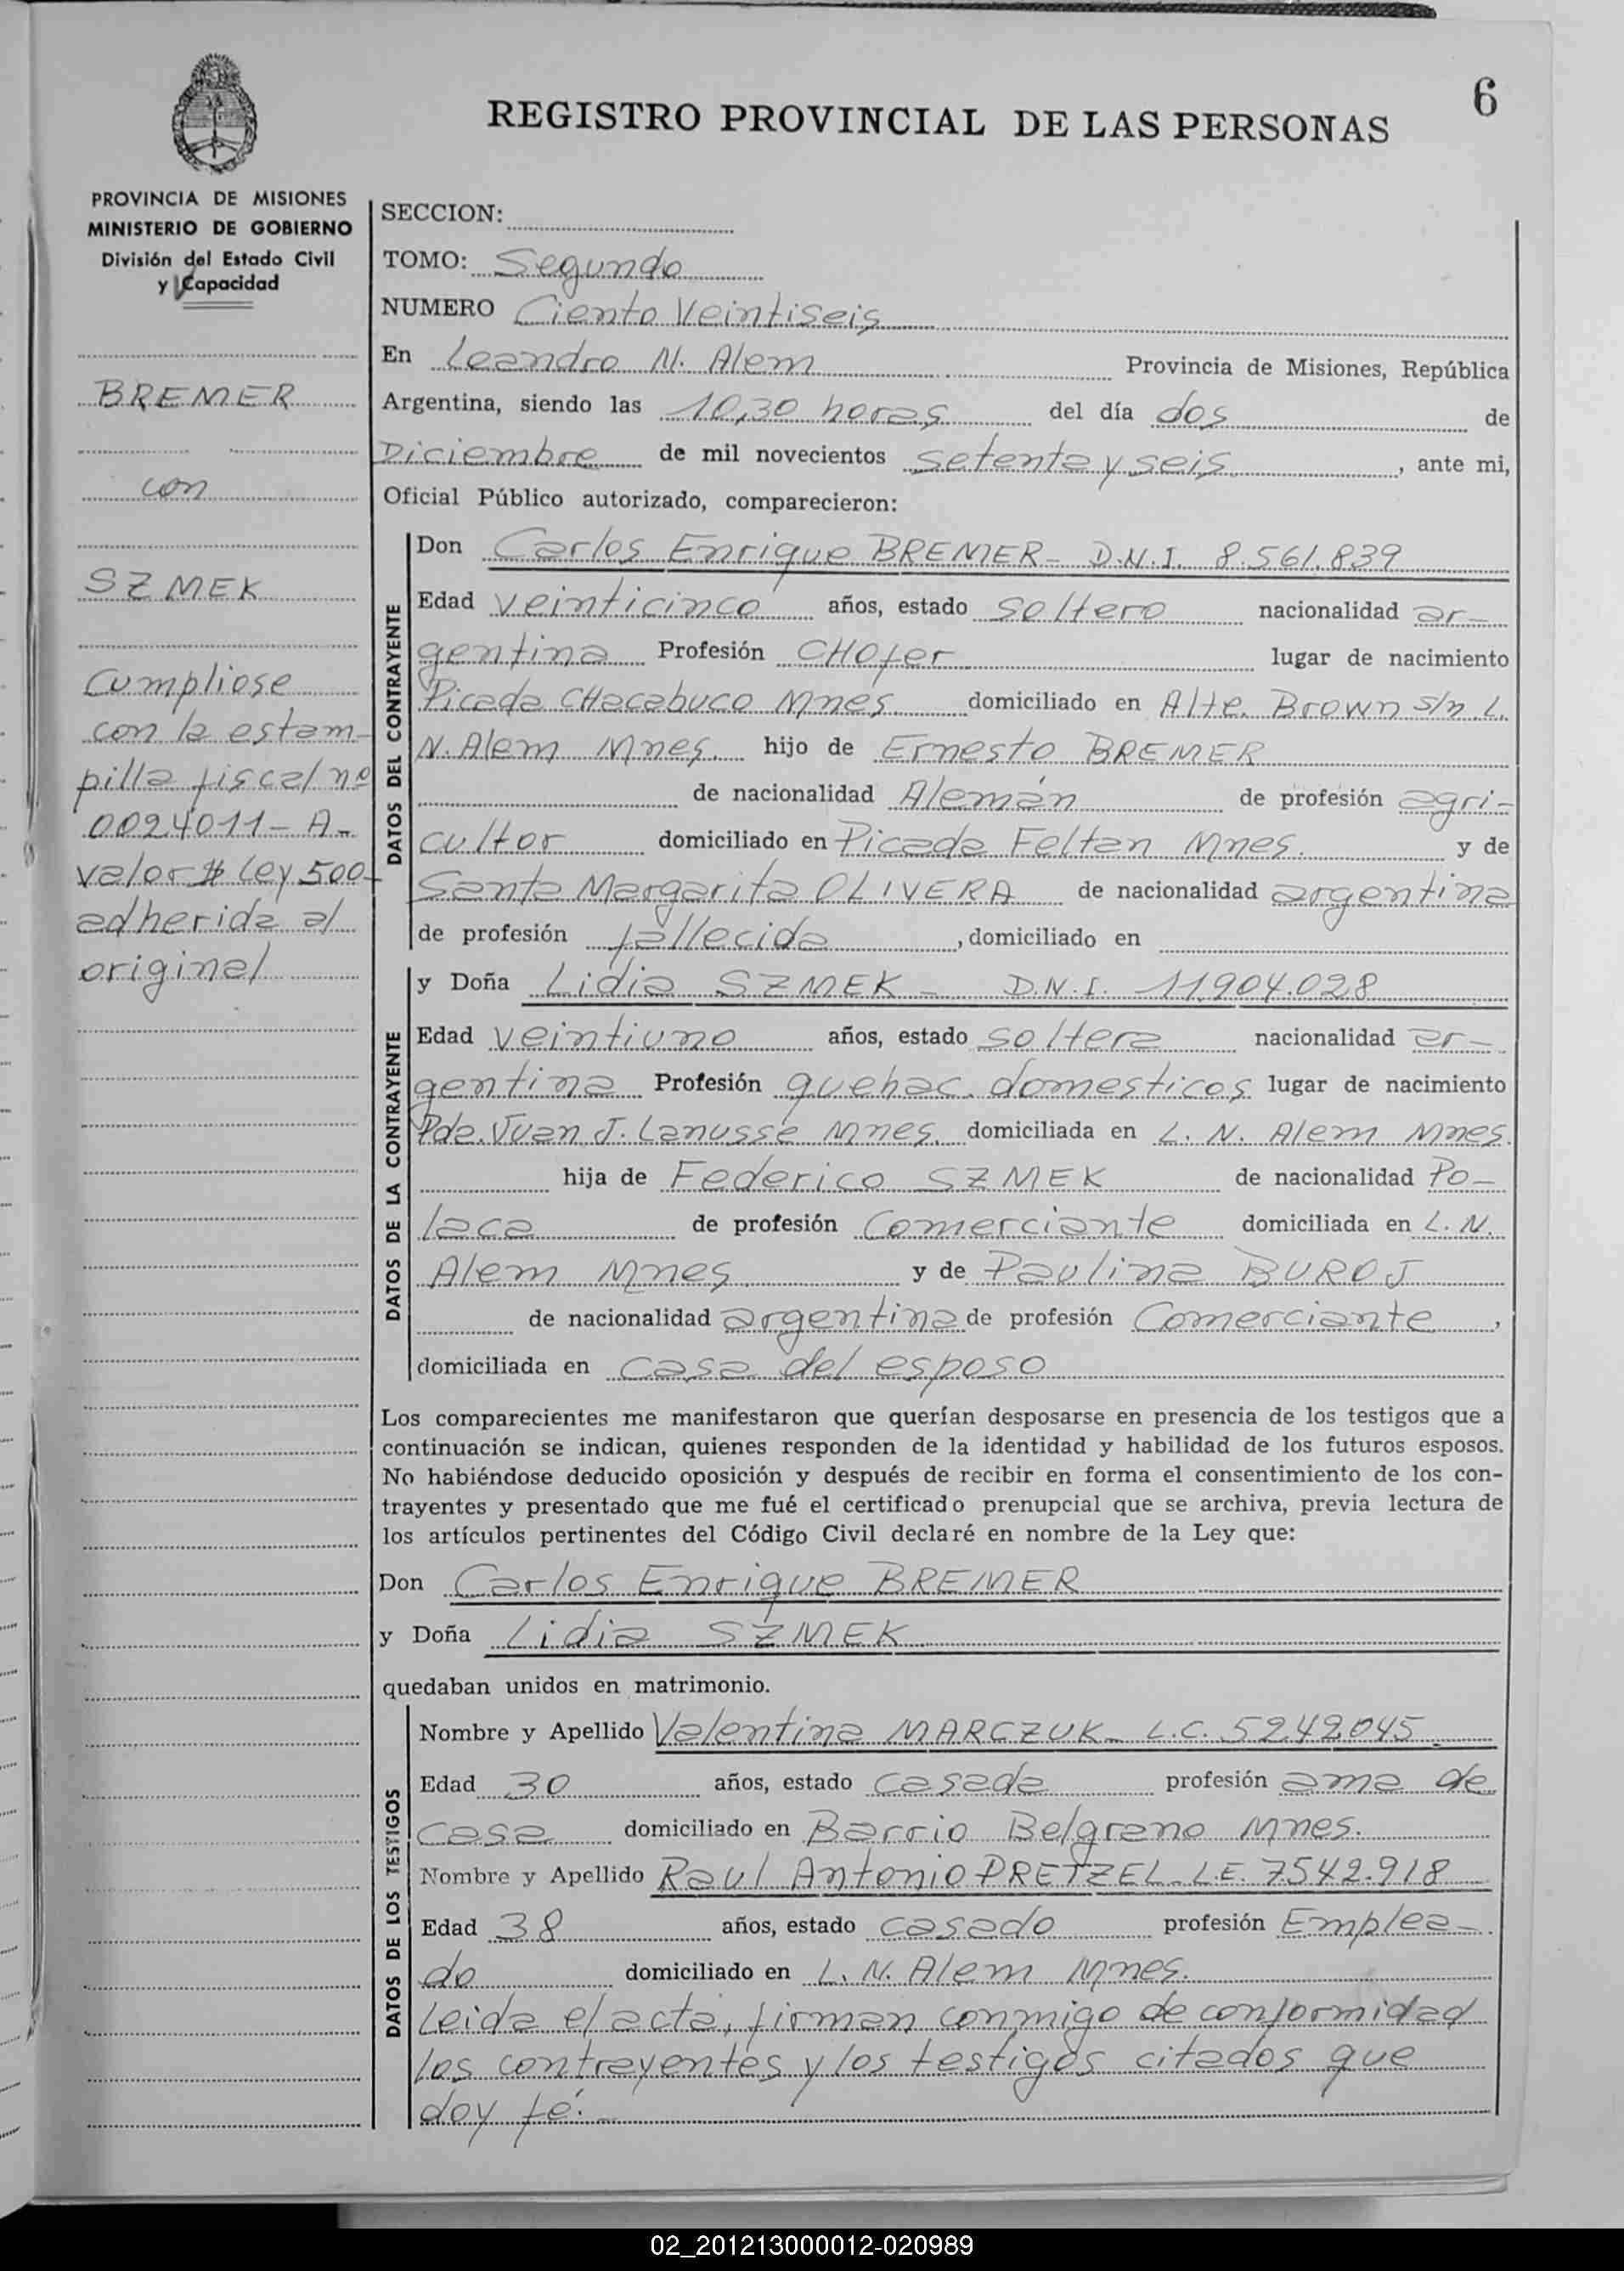 6
REGISTRO PROVINCIAL DE LAS PERSONAS
PROVINCIA DE MISIONES
MINISTERIO DE GOBIERNO
División del Estado Civil
y Capacidad
BREMER
con
SZMEK
Cumpliose
con la estam-
pilla fiscal nº
0024011-A-
valor $ Ley 500-
adherida al
original
SECCION:
TOMO: Segundo
NUMERO Ciento Veintiseis
En Leandro N. Alem Provincia de Misiones, República
Argentina, siendo las 10,30 horas del día dos de
Diciembre de mil novecientos setenta y seis, ante mi,
Oficial Público autorizado, comparecieron:
DATOS DEL CONTRAYENTE
Don Carlos Enrique BREMER- D.N.I. 8.561.839
Edad veinticinco años, estado soltero nacionalidad ar-
gentina Profesión CHofer lugar de nacimiento
Picada CHacabuco Mnes domiciliado en Alte. Brown s/n. L.
N. Alem Mnes. hijo de Ernesto BREMER
de nacionalidad Alemán de profesión agri-
cultor domiciliado en Picada Feltan Mnes. y de
Santa Margarita OLIVERA de nacionalidad argentina
de profesión fallecida, domiciliado en
DATOS DE LA CONTRAYENTE
y Doña Lidia SZMEK- D.N.I. 11.904.028
Edad veintiuno años, estado soltera nacionalidad ar-
gentina Profesión quehac. domesticos lugar de nacimiento
Pda. Juan J. Lanusse Mnes. domiciliada en L. N. Alem Mnes.
hija de Federico SZMEK de nacionalidad Po-
laca de profesión Comerciante domiciliada en L. N.
Alem Mnes. y de Paulina BUROJ
de nacionalidad argentina de profesión Comerciante,
domiciliada en casa del esposo
Los comparecientes me manifestaron que querían desposarse en presencia de los testigos que a
continuación se indican, quienes responden de la identidad y habilidad de los futuros esposos.
No habiéndose deducido oposición y después de recibir en forma el consentimiento de los con-
trayentes y presentado que me fué el certificado prenupcial que se archiva, previa lectura de
los artículos pertinentes del Código Civil declaré en nombre de la Ley que:
Don Carlos Enrique BREMER
y Doña Lidia SZMEK
quedaban unidos en matrimonio.
DATOS DE LOS TESTIGOS
Nombre y Apellido Valentina MARCZUK- L.C. 5.242.045
Edad 30 años, estado casada profesión ama de
casa domiciliado en Barrio Belgrano Mnes.
Nombre y Apellido Raul Antonio PRETZEL- L.E. 7.542.918
Edad 38 años, estado casado profesión Emplea-
do domiciliado en L. N. Alem Mnes.
Leida el acta, firman conmigo de conformidad
los contrayentes y los testigos citados que
doy fé.-
02_201213000012-020989